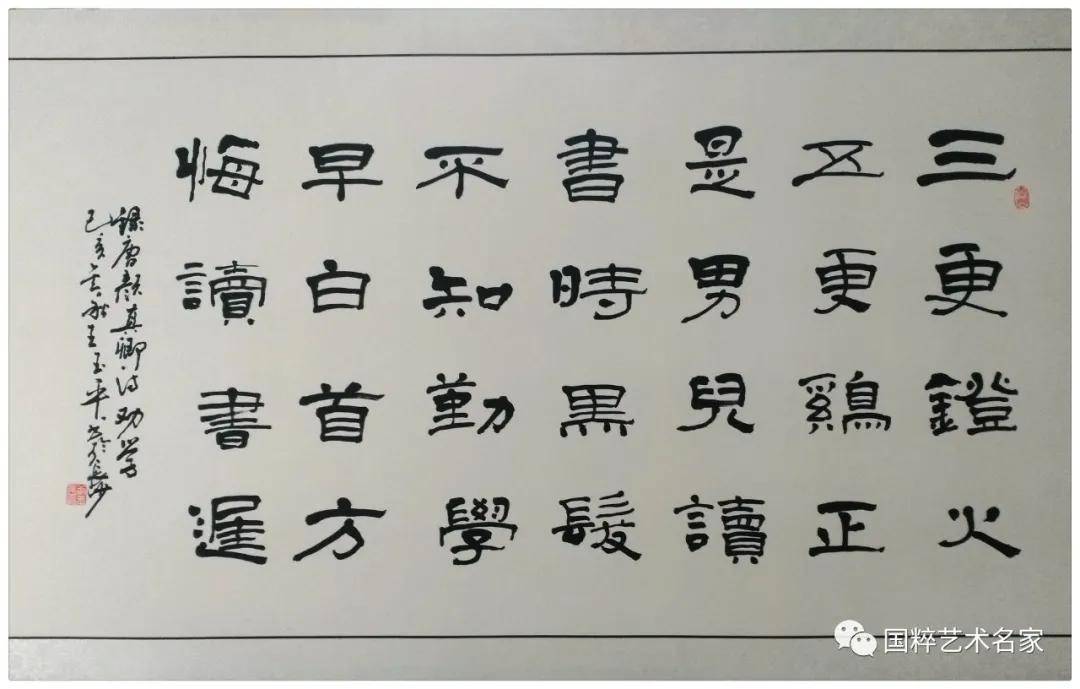 三更鐙火
五更鷄正
是男兒讀
書時黑髮
不知勤學
早白首方
悔讀書遲
錄唐顏真卿诗劝学
己亥金秋王玉平书於长沙
国粹艺术名家